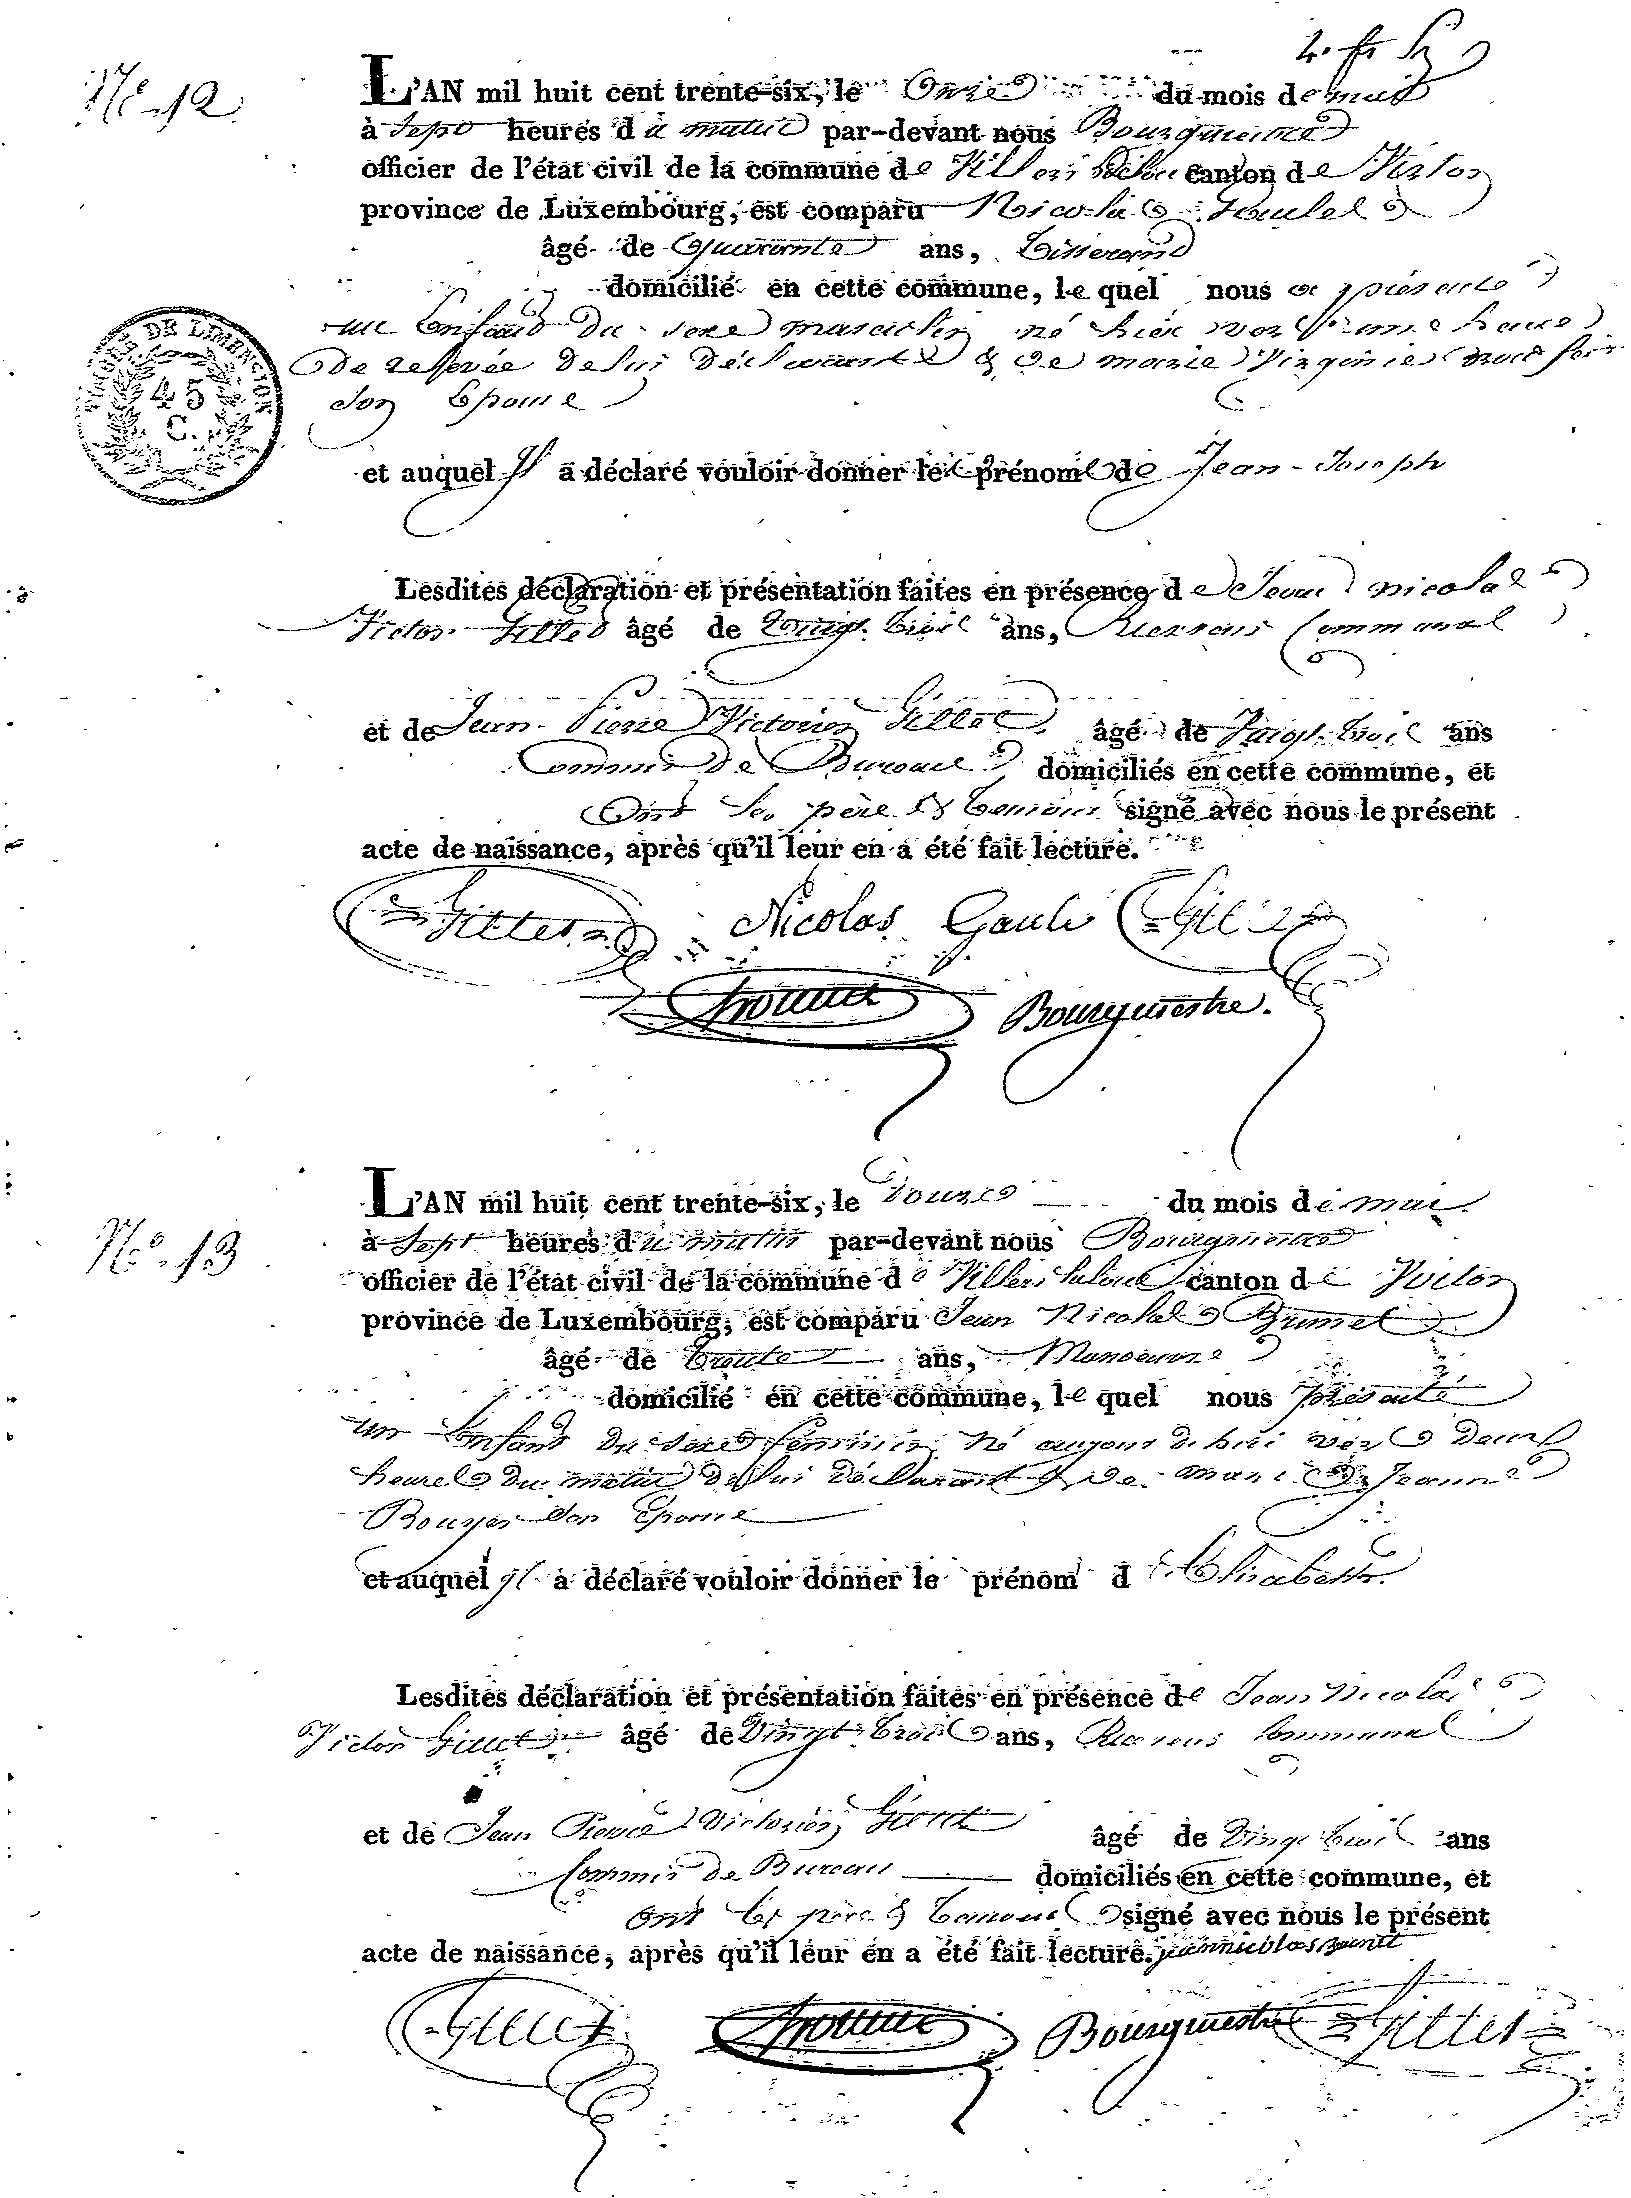 N° 12
L'AN mil huit cent trente-six, le Onze du mois de mai
à sept heures du matin par-devant nous Bourgmestre
officier de l'état civil de la commune de Villers canton de Virton
province de Luxembourg, est comparu Nicolas
âgé de quarante ans, Tisserand
domicilié en cette commune, le quel nous a présenté
un Enfant du sexe masculin né hier vers une heure
de relevée de lui déclarant & de marie Virginie
son Epouse
TIMBRE DE DIMENSION
45
C.
et auquel Il a déclaré vouloir donner les prénoms de Jean-Joseph
Lesdites déclaration et présentation faites en présence de Jean nicolas
Victor Gillet âgé de vingt-trois ans, Receveur Communal
et de Jean-Pierre Victorien Gillet âgé de vingt-trois ans
Commis de Bureau domiciliés en cette commune, et
Ont les père & temoins signé avec nous le présent
acte de naissance, après qu'il leur en a été fait lecture.
Gillet Nicolas Gillet
Bourgmestre.
N° 13
L'AN mil huit cent trente-six, le Douze du mois de mai
à sept heures du matin par-devant nous Bourgmestre
officier de l'état civil de la commune de Villers canton de Virton
province de Luxembourg, est comparu Jean Nicolas Brunet
âgé de trente ans, Manoeuvre
domicilié en cette commune, le quel nous présenté
un Enfant du sexe féminin né aujourd'hui vers deux
heures du matin de lui déclarant & de marie Jeanne
son Epouse
et auquel il a déclaré vouloir donner le prénom d'Elisabeth
Lesdites déclaration et présentation faites en présence de Jean Nicolas
Victor Gillet âgé de Vingt-trois ans, Receveur Communal
et de Jean Pierre Victorien Gillet âgé de Vingt trois ans
Commis de Bureau domiciliés en cette commune, et
ont les père & temoins signé avec nous le présent
acte de naissance, après qu'il leur en a été fait lecture. jean nicolas Brunet
Gillet Bourgmestre Gillet